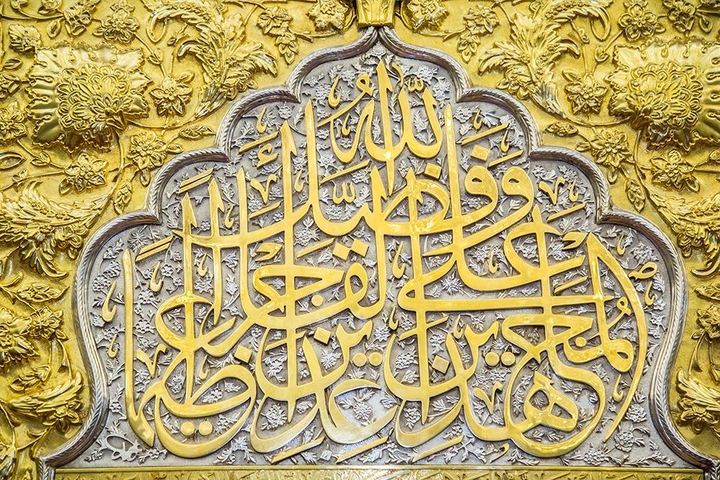 وفضل الله المجاهدين على القاعدين أجرا عظيما